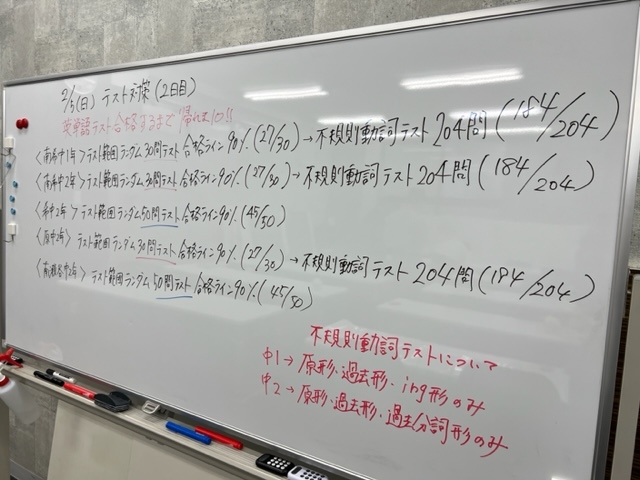 2/5(日) テスト対策(2日目)
英単語テスト合格するまで帰れま10!!
〈南希中1年〉テスト範囲ランダム30問テスト 合格ライン90%(27/30)→不規則動詞テスト204問(184/204)
〈南希中2年〉テスト範囲ランダム30問テスト 合格ライン90%(27/30)→不規則動詞テスト204問(184/204)
中2年〉テスト範囲ランダム50問テスト合格ライン90%(45/50)
中2年〉テスト範囲ランダム30問テスト合格ライン90%(27/30)→不規則動詞テスト204問(184/204)
中2年〉テスト範囲ランダム50問テスト合格ライン90%(45/50)
不規則動詞テストについて
中1→原形・過去形・ing形のみ
中2→原形・過去形・過去分詞形のみ